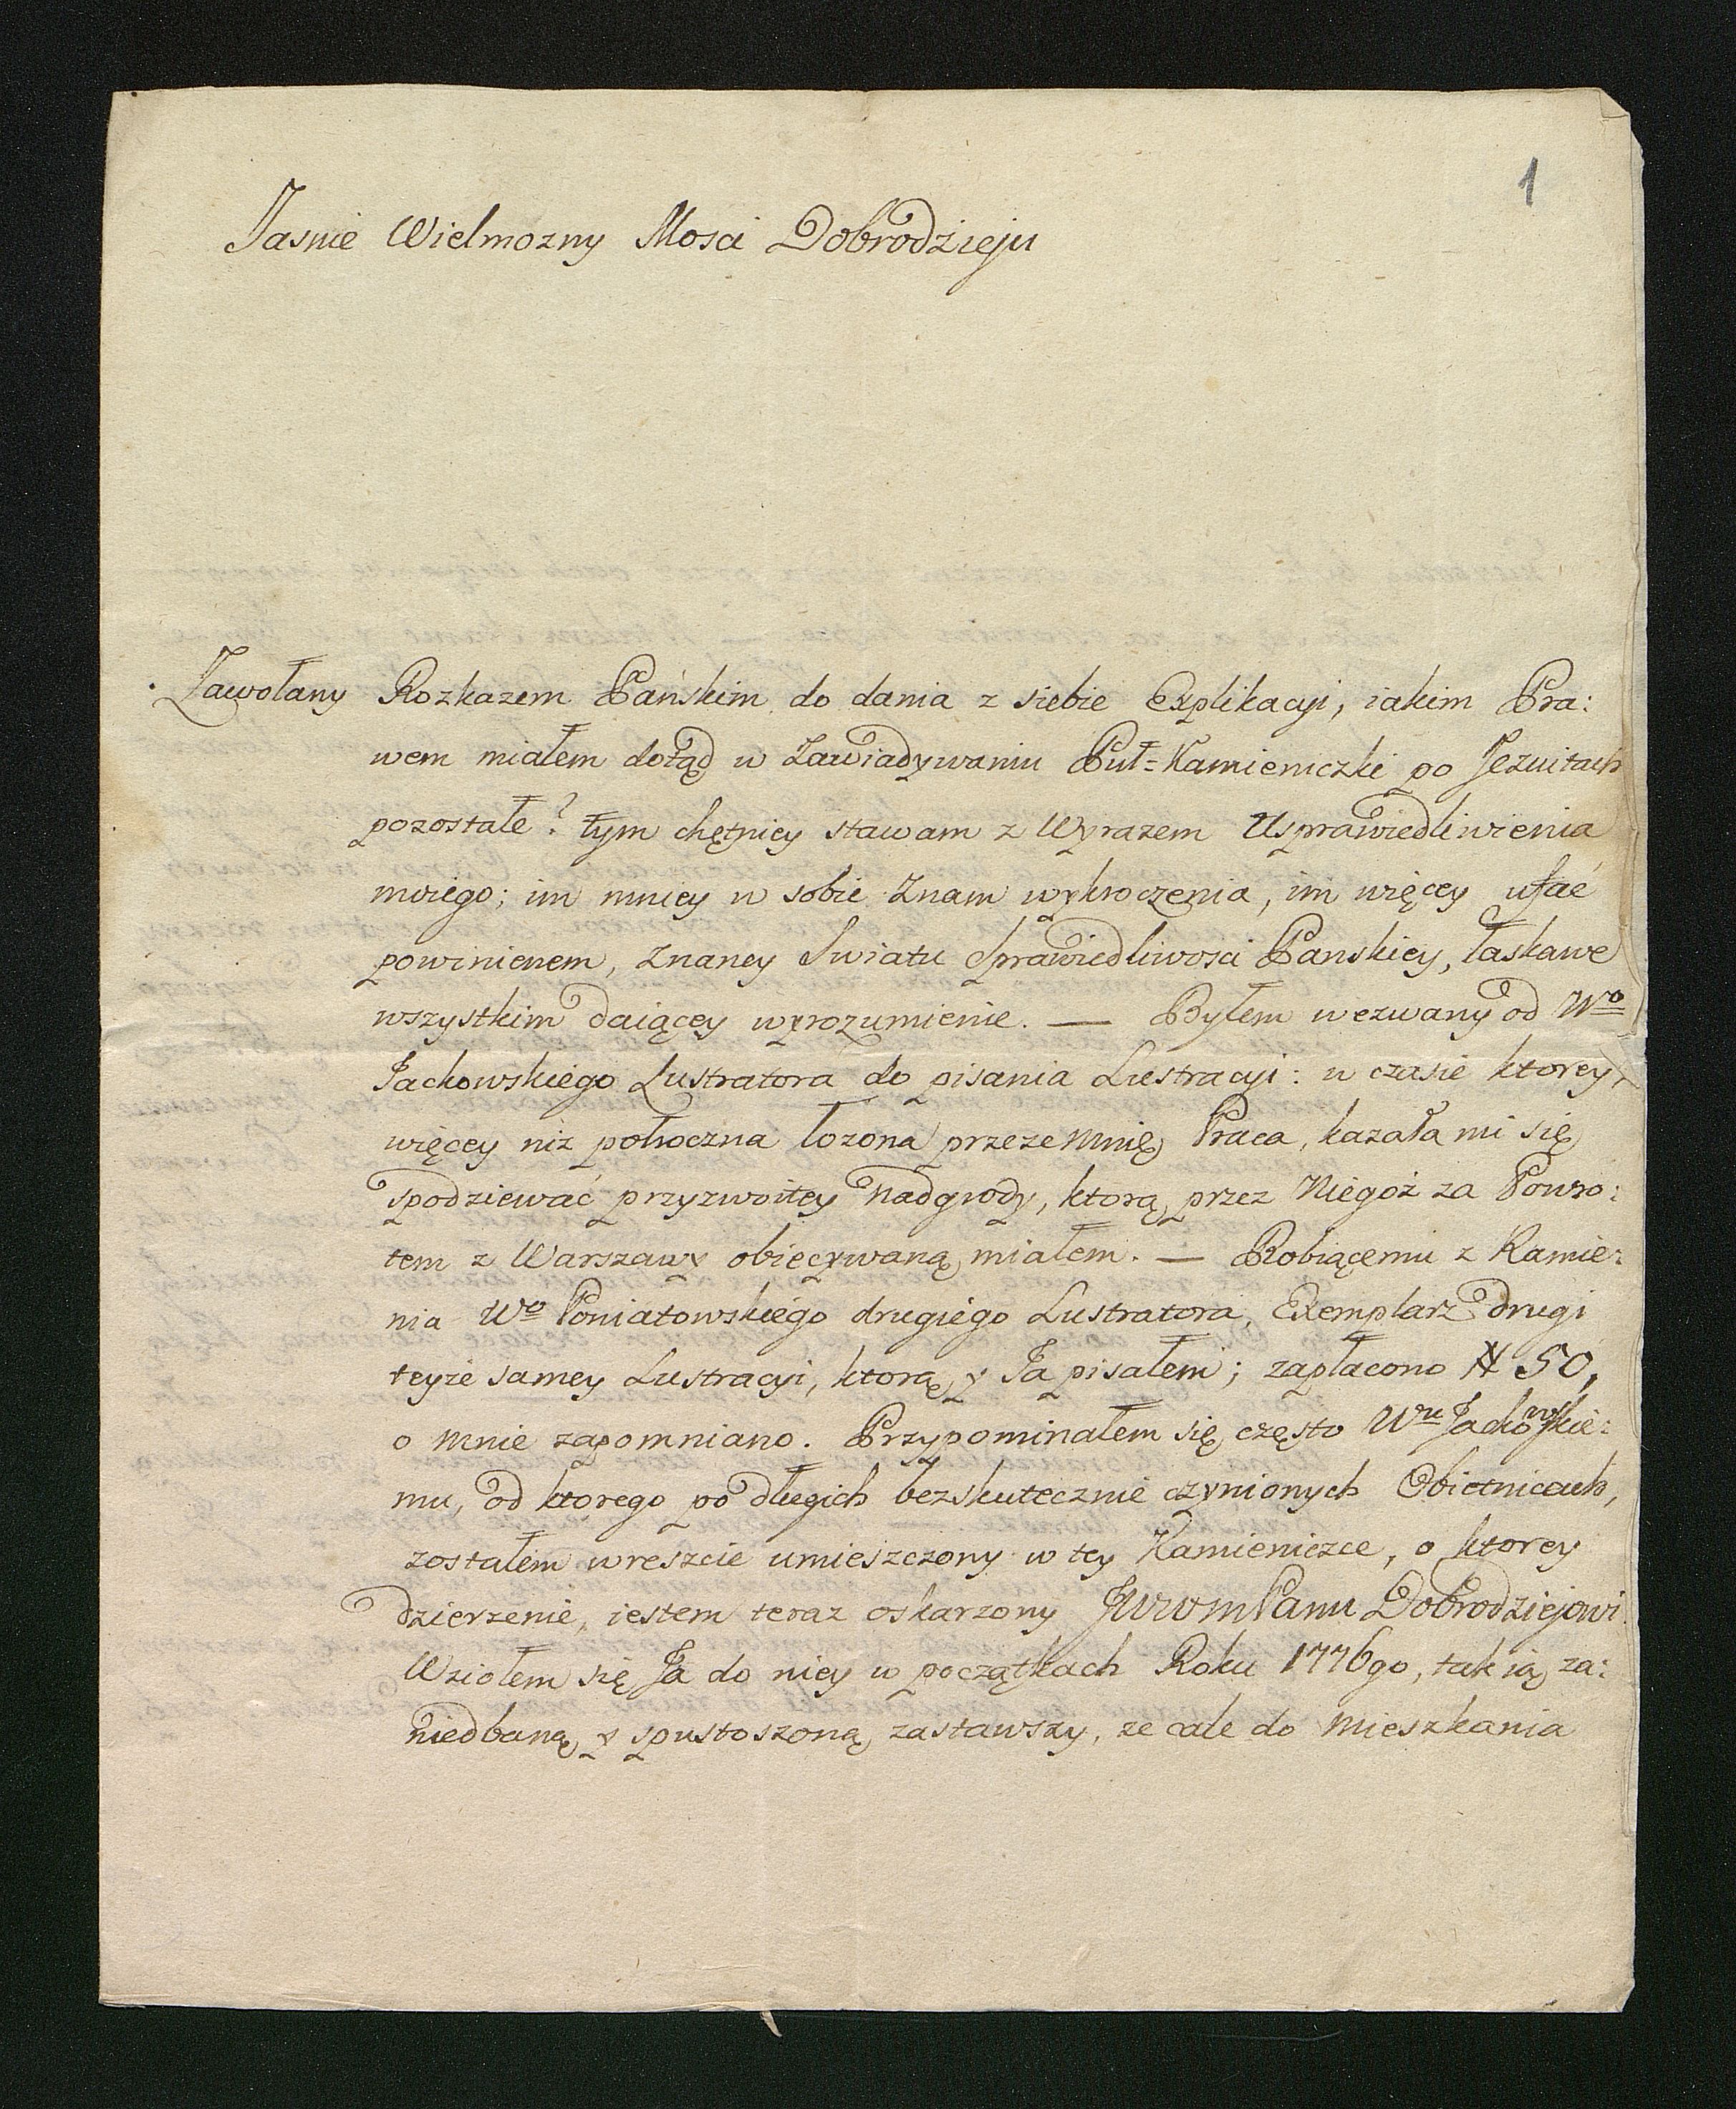 1
Jasnie Wielmozny Mosci Dobrodzieju
Zawołany Rozkazem Pańskim do dania z siebie Explikacyi, iakim Pra:
wem miałem dotąd w Zawiadywaniu Puł=Kamieniczki po Jezuitach
pozostałe? tym chętniey stawam z Wyrazem Usprawiedliwienia
moiego; im mniey w sobie znam wykroczenia, im więcey ufać
powinienem, znaney Swiatu Sprawiedliwosci Panskiey, łaskawe
wszystkim daiącey wyrozumienie. — Byłem wezwany od Wo
Jackowskiego Lustratora do pisania Lustracyi: w czasie ktorey,
więcey niz połroczna łozona przezemnię Praca, kazała mi się
spodziewać przyzwoitey nadgrody, ktorą przez Niegoż za Powro:
tem z Warszawy obiecywaną miałem. — Robiącemu z Ramie:
nia Wo Poniatowskiego drugiego Lustratora, Exemplarz drugi
teyże samey Lustracyi, ktorą y Ja pisałem; zapłacono # 50,
o mnie zapomniano. Przypominałem się często Wu Jackowskie:
mu, od ktorego po długich bezskutecznie czynionych Obietnicach,
zostałem wreszcie umieszczony w tey Kamieniczce, o ktorey
dzierzenie, iestem teraz oskarzony JWWmPanu Dobrodziejowi.
Wziołem się Ja do niey w początkach Roku 1776go, tak ią za:
niedbaną y spustoszoną zastawszy, ze cale do mieszkania